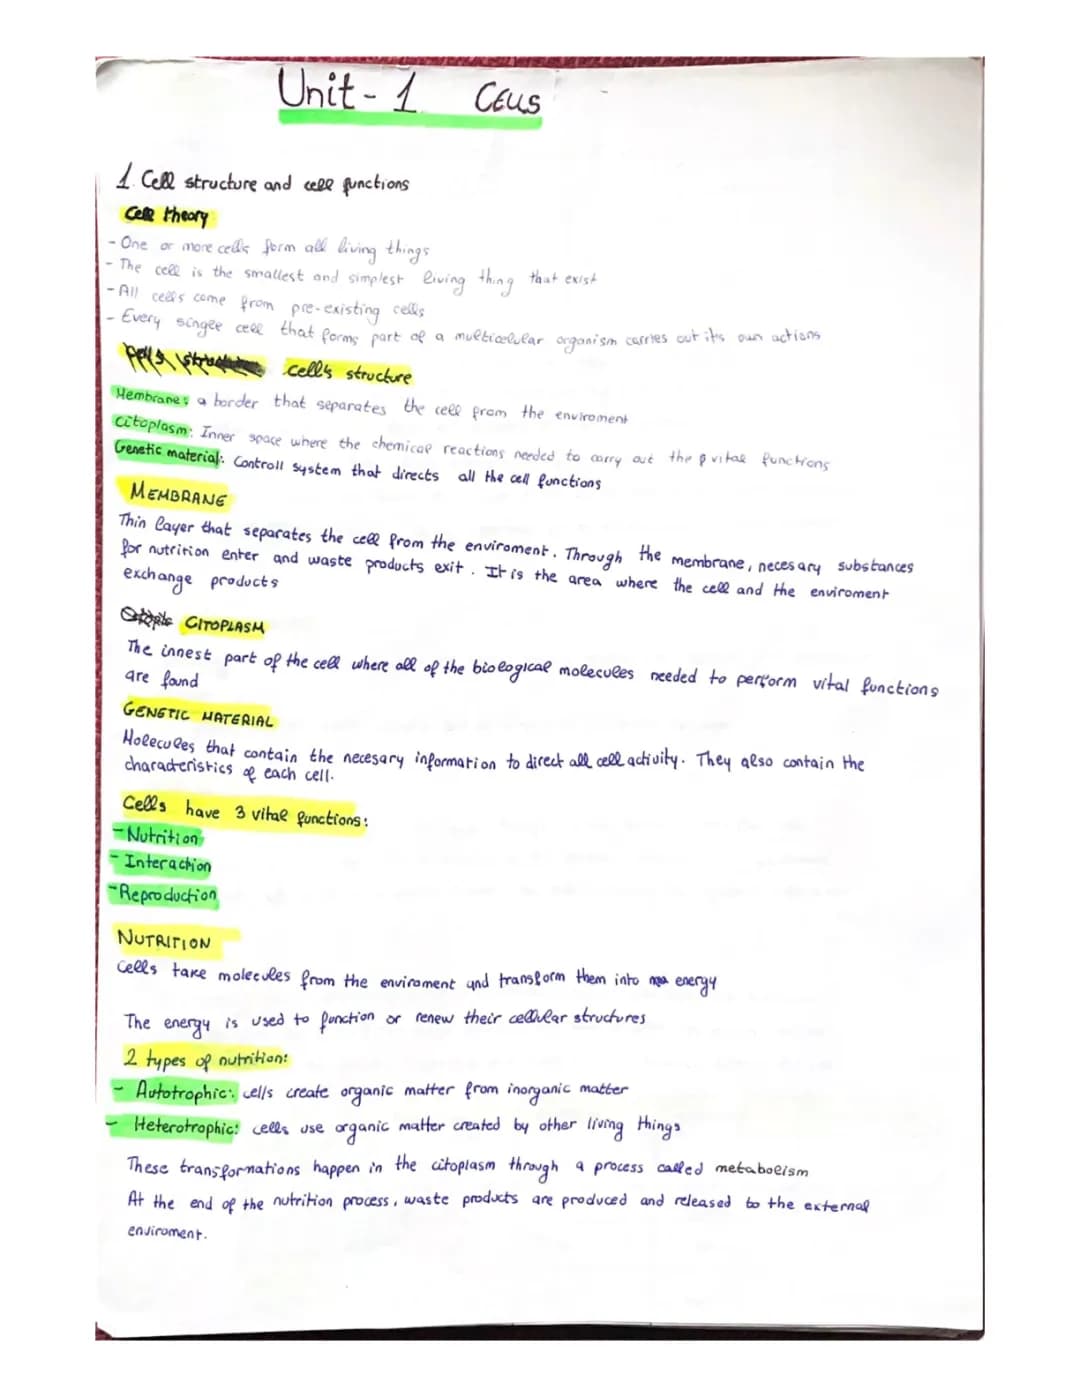 Unit - 1 CELLS
1. Cell structure and cell functions
Cell theory
- One or more cells form all living things
- The cell is the smallest and simplest living thing that exist
- All cells come from pre-existing cells
- Every single cell that forms part of a multicelular organism carries out it's own actions
cell's structure
Membrane: a border that separates the cell from the enviroment
Citoplasm: Inner space where the chemical reactions needed to carry out the vital functions
Genetic material: Controll system that directs all the cell functions
MEMBRANE
Thin layer that separates the cell from the enviroment. Through the membrane, necesary substances
for nutrition enter and waste products exit. It is the area where the cell and the enviroment
exchange products
CITOPLASM
The innest part of the cell where all of the biological molecules needed to perform vital functions
are found
GENETIC MATERIAL
Molecules that contain the necesary information to direct all cell activity. They also contain the
characteristics of each cell.
Cells have 3 vital functions:
- Nutrition
- Interaction
- Reproduction
NUTRITION
Cells take molecules from the enviroment and transform them into energy
The energy is used to function or renew their cellular structures
2 types of nutrition:
- Autotrophic: cells create organic matter from inorganic matter
- Heterotrophic: cells use organic matter created by other living things
These transformations happen in the citoplasm through a process called metabolism
At the end of the nutrition process, waste products are produced and released to the external
enviroment.